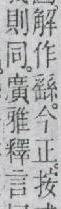 則同廣雅釋言
解作繇今正按